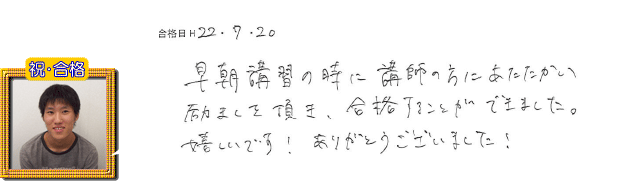 合格日 H 22.7.20
祝・合格
早朝講習の時に講師の方にあたたかい
励ましを頂き、合格することができました。
嬉しいです！ありがとうございました！